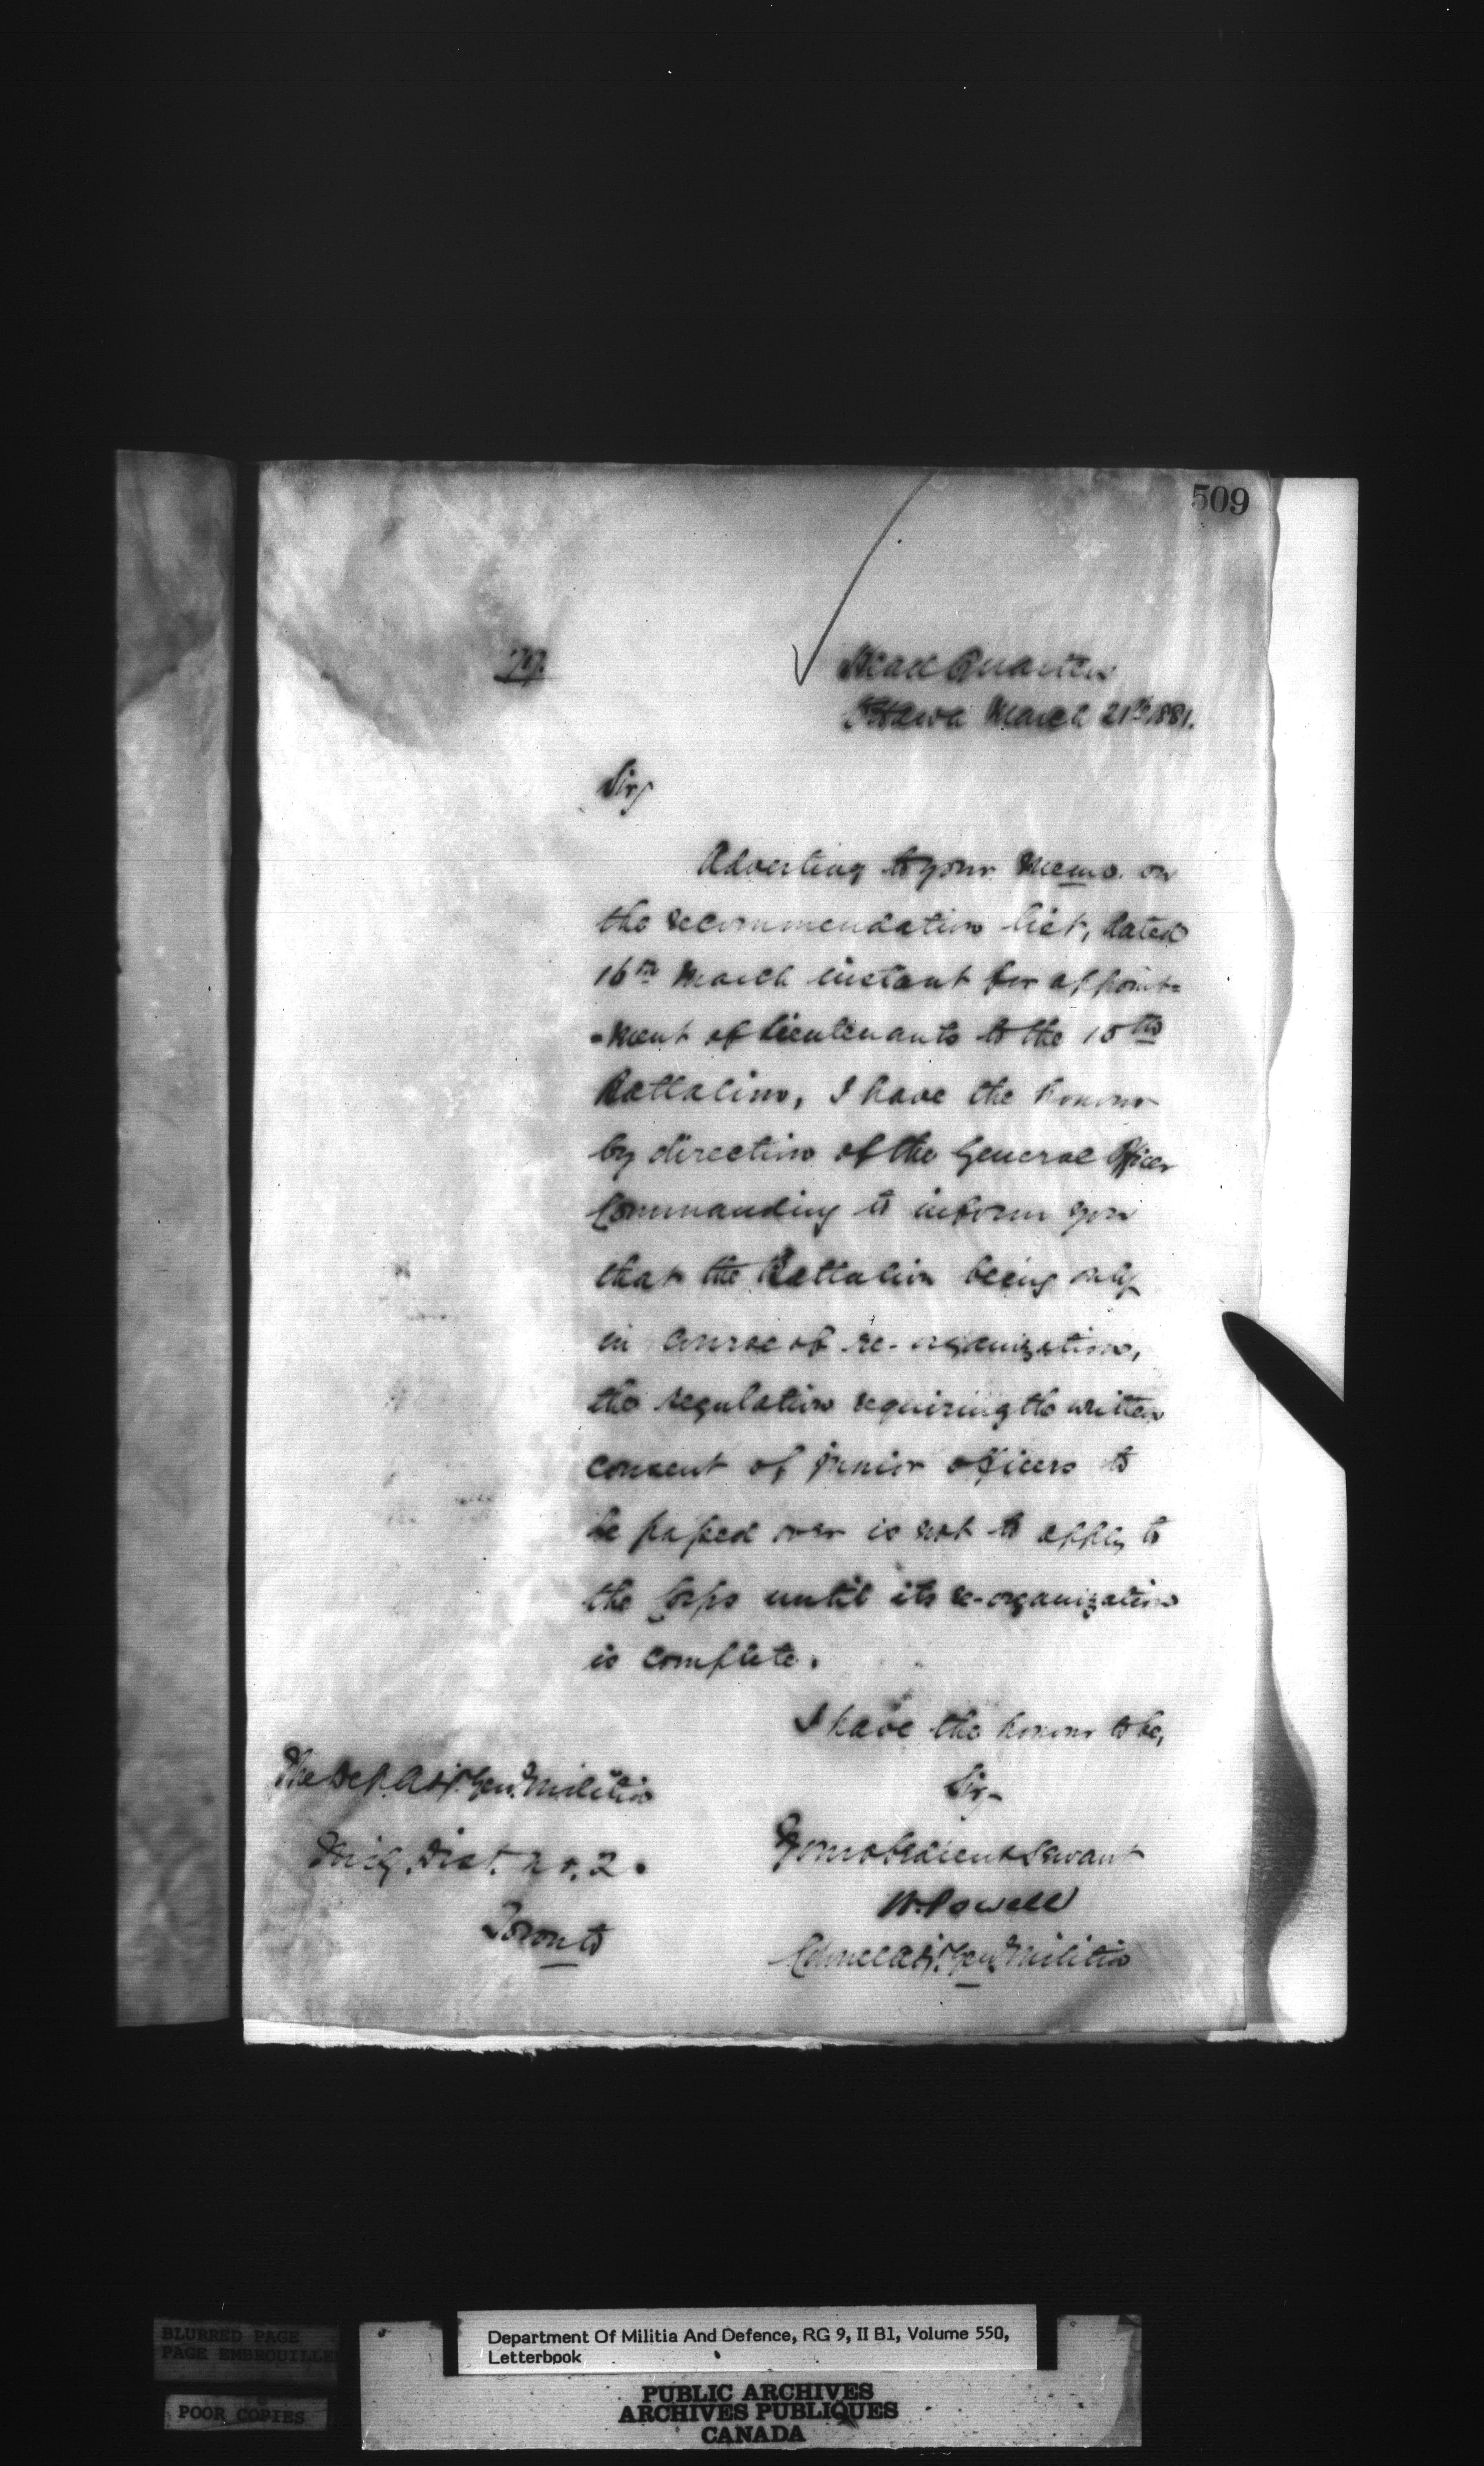 509
Head Quarters
Ottawa March 21st 1881.
Sir,
Adverting to your memo. on
the recommendation list, dated
16th March instant for appoint=
=ment of Lieutenants to the 10th
Battalion, I have the honour
by direction of the General Officer
Commanding to inform you
that the Battalion being only
in course of re-organization,
the regulation requiring the written
consent of junior officers to
be passed over is not to apply to
the Corps until its re-organization
is complete.
I have the honour to be,
Sir,
Your obedient Servant
W. Powell
Colonel Adjt. Genl. Militia
The Dep. Adjt. Genl. Militia
Mily. Dist. No. 2.
Toronto
BLURRED PAGE
PAGE EMBROUILLE
POOR COPIES
Department Of Militia And Defence, RG 9, II B1, Volume 550,
Letterbook
PUBLIC ARCHIVES
ARCHIVES PUBLIQUES
CANADA